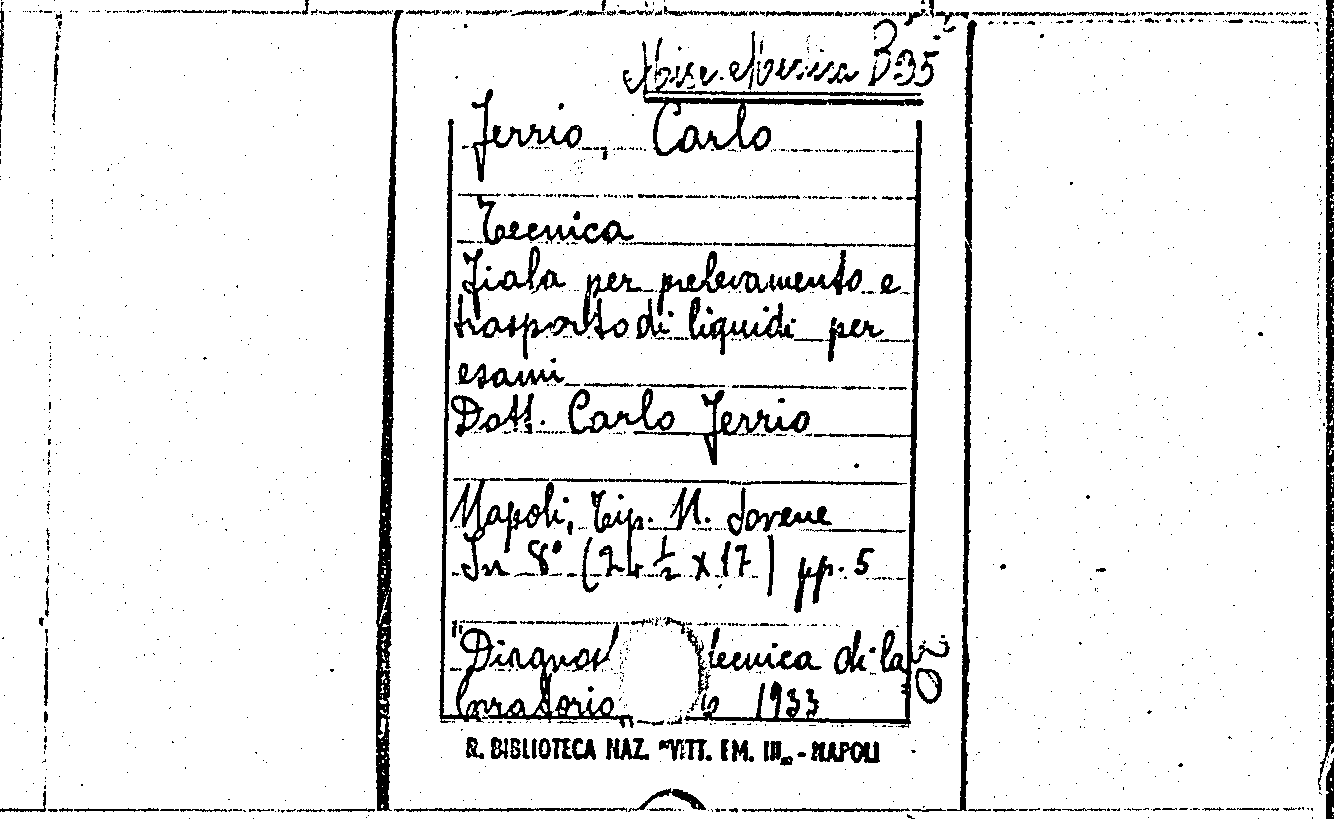 Misc. Medica B 35
Ferrio, Carlo
Tecnica
Fiala per prelevamento e
trasporto di liquidi per
esami
Dott. Carlo Ferrio
Napoli, Tip. N. Jovene
In 8° (24 ½ x 17) pp. 5
"Diagnost tecnica di la
boratorio„ 1933
R. BIBLIOTECA NAZ. "VITT. EM. III„ - NAPOLI